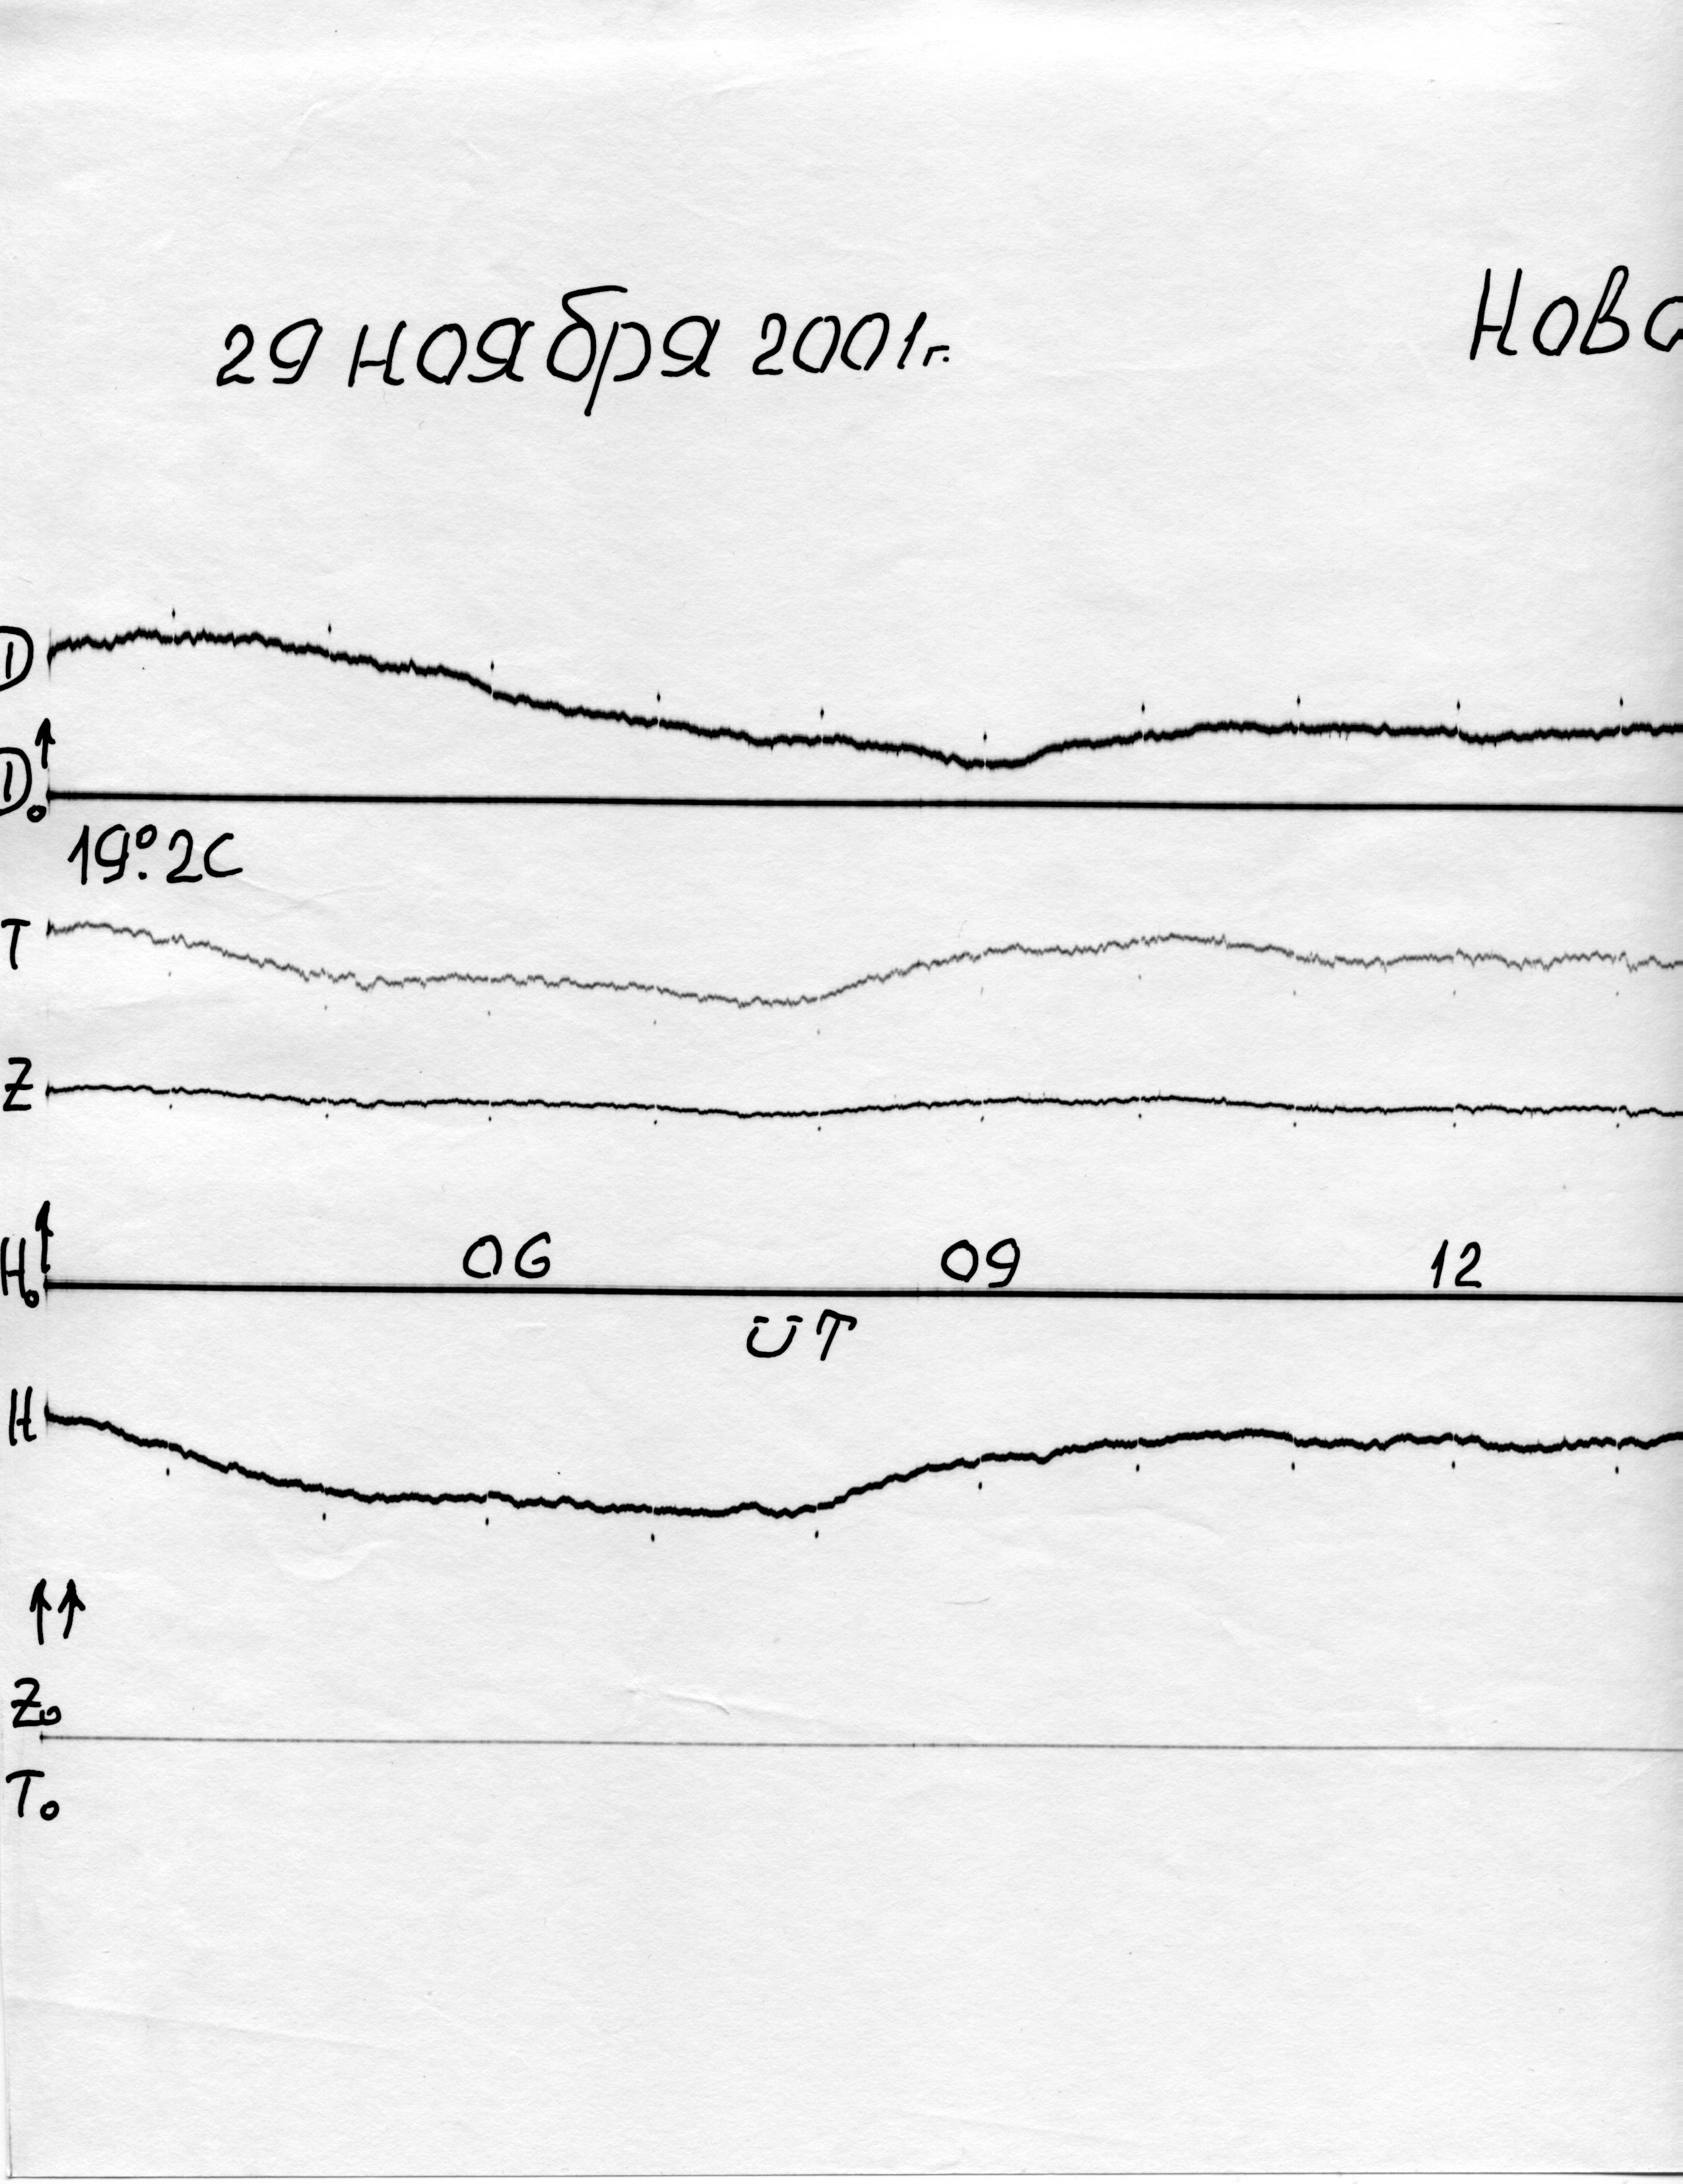 29 ноября 2001г.
Нова
D
D₀
19°.2C
T
Z
H₀
06 09 12
UT
H
Z₀
T₀